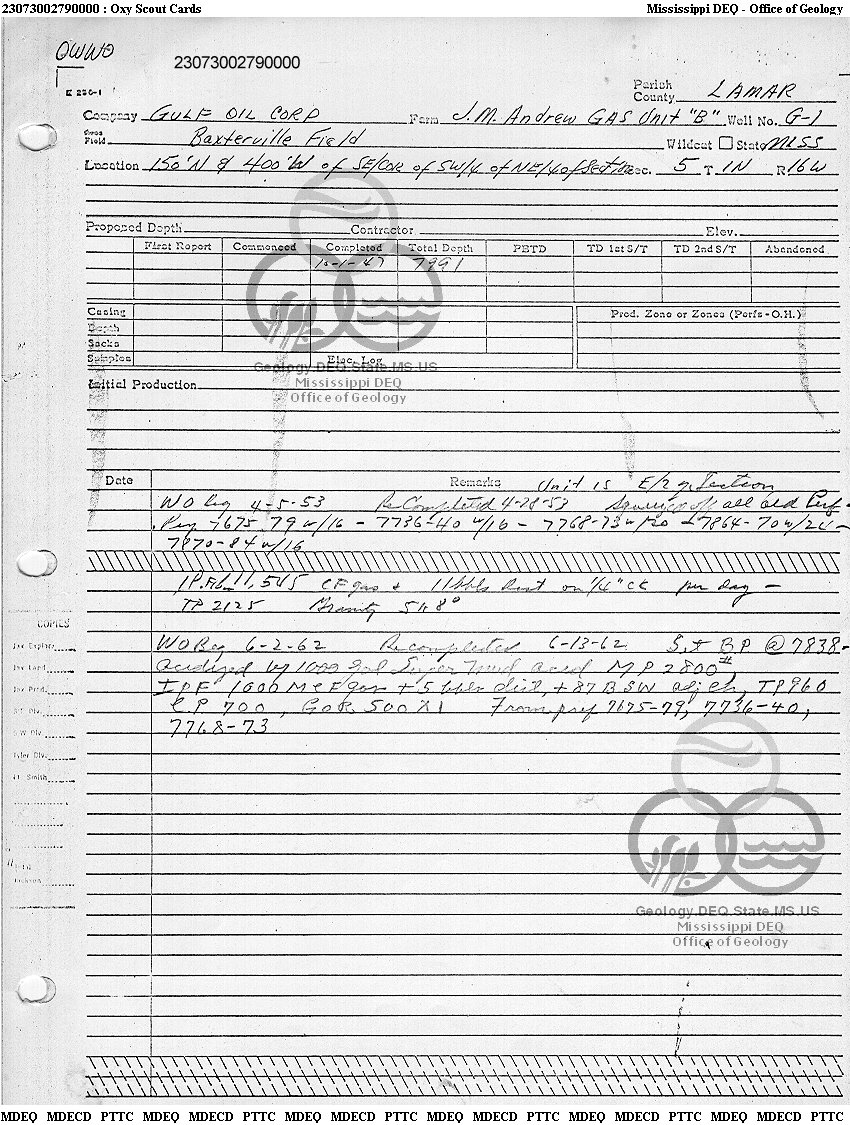 23073002790000 : Oxy Scout Cards Mississippi DEQ - Office of Geology
OWWO
23073002790000
E 236-1
Parish
County LAMAR
Company GULF OIL CORP Farm J.M. Andrew GAS Unit "B" Well No. G-1
Field Baxterville Field Wildcat State MISS
Location 150'N & 400'W of SE/COR of SW/4 of NE/4 of Section Sec. 5 T 1N R 16W
Proposed Depth Contractor Elev.
First Report Commenced Completed Total Depth PBTD TD 1st S/T TD 2nd S/T Abandoned
10-1-47 7991
Casing Prod. Zone or Zones (Perfs-O.H.)
Depth
Sacks
Samples Elec. Log
Geology.DEQ.State.MS.US
Mississippi DEQ
Office of Geology
Initial Production
Date Remarks Unit is E/2 of Section
WO Beg 4-5-53 ReCompleted 4-28-53 off all old Perf.
7675-79 w/16 - 7736-40 w/16 - 7768-73 w/20 - 7864-70 w/24 -
7870-84 w/16
11,545 CF gas + 11 bbls dist on 1/4" CK per day -
TP 2125 Gravity 51.8°
COPIES
WO Beg 6-2-62 Recompleted 6-13-62 Set BP @ 7838-
Acidized w/ 1000 gal Mud acid MP 2800#
IPF 1000 MCF gas + 5 bbls dist, + 87 BSW TP 960
CP 700, GOR 500 X1 From perf 7675-79, 7736-40,
7768-73
Smith
Geology.DEQ.State.MS.US
Mississippi DEQ
Office of Geology
MDEQ MDECD PTTC MDEQ MDECD PTTC MDEQ MDECD PTTC MDEQ MDECD PTTC MDEQ MDECD PTTC MDEQ MDECD PTTC